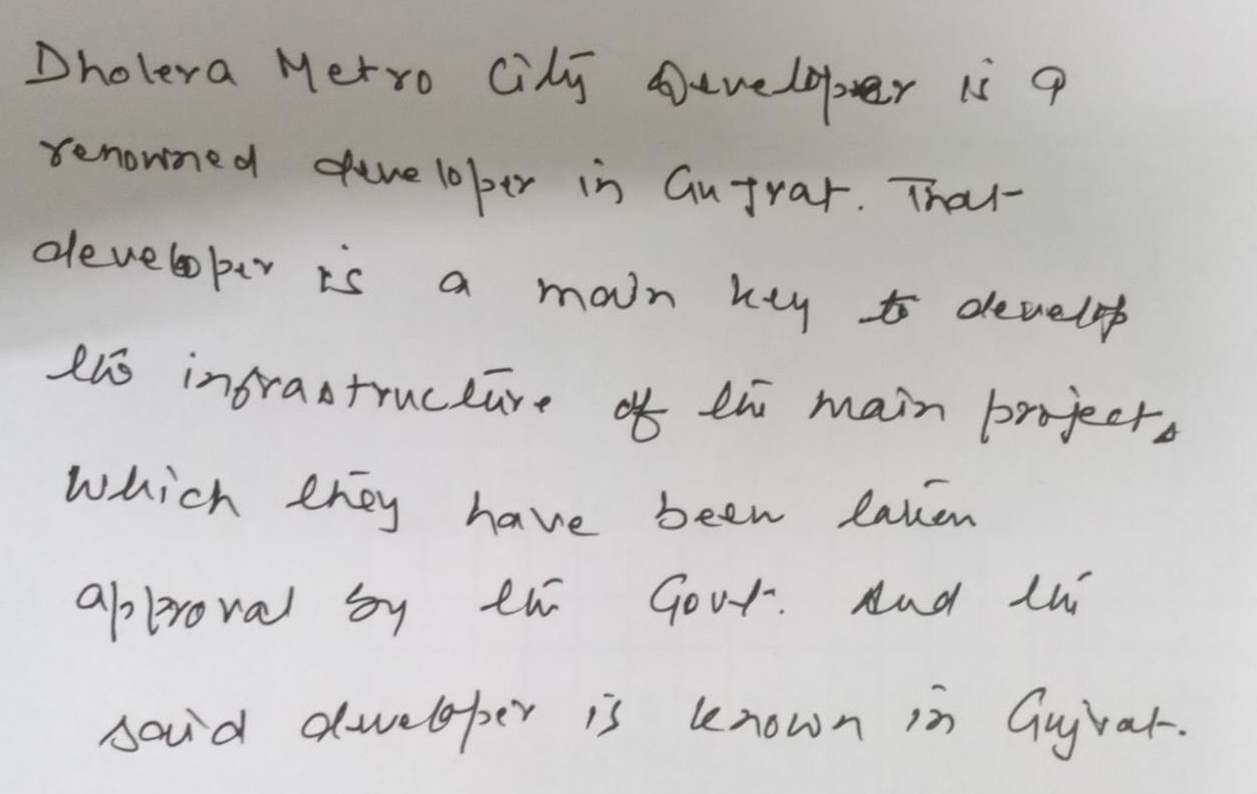 Dholera Metro City Developer is a
renowned developer in Gujrat. That
developer is a main key to develop
the infrastructure of the main projects
which they have been taken
approval by the Govt. And the
said developer is known in Gujrat.